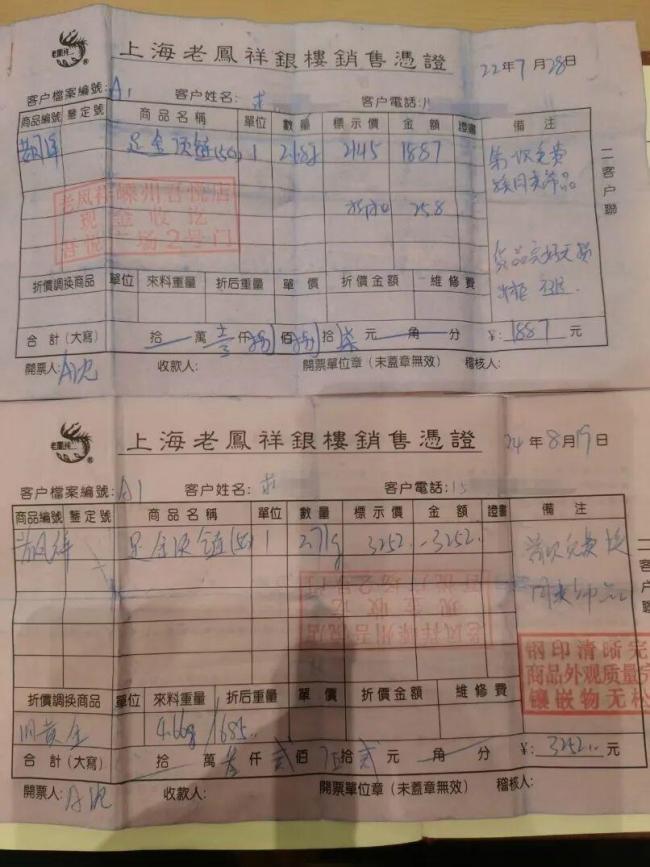 老鳳祥®
上海老鳳祥銀樓銷售憑證
22年7月28日
客户檔案編號:A1 客户姓名: 客户電話:
商品編號 鑒定號 商品名稱 單位 數量 標示價 金額 證書 備注
足金项链(50) 1 2.68g 2145 1887
258
老凤祥嵊州吾悦店
现金收讫
吾悦广场2号门
二客户聯
折價調换商品 單位 來料重量 折后重量 單價 折價金額 維修費
合計(大寫) 拾 萬 仟 佰 拾柒元 角 分 ¥:1887元
開票人: 收款人: 開票單位章(未蓋章無效) 稽核人:
老鳳祥®
上海老鳳祥銀樓銷售憑證
24年8月19日
客户檔案編號:A1 客户姓名: 客户電話:15
商品編號 鑒定號 商品名稱 單位 數量 標示價 金額 證書 備注
足金项链(50) 1 2.71g 3252 3252
老凤祥嵊州吾悦店
现金收讫
吾悦广场2号门
二客户聯
钢印清晰完
商品外观质量完
镶嵌物无松
折價調换商品 單位 來料重量 折后重量 單價 折價金額 維修費
旧黄金 4.66g/1685
合計(大寫) 拾 萬 叁仟贰佰 拾贰元 角 分 ¥:3252元
開票人: 收款人: 開票單位章(未蓋章無效) 稽核人: